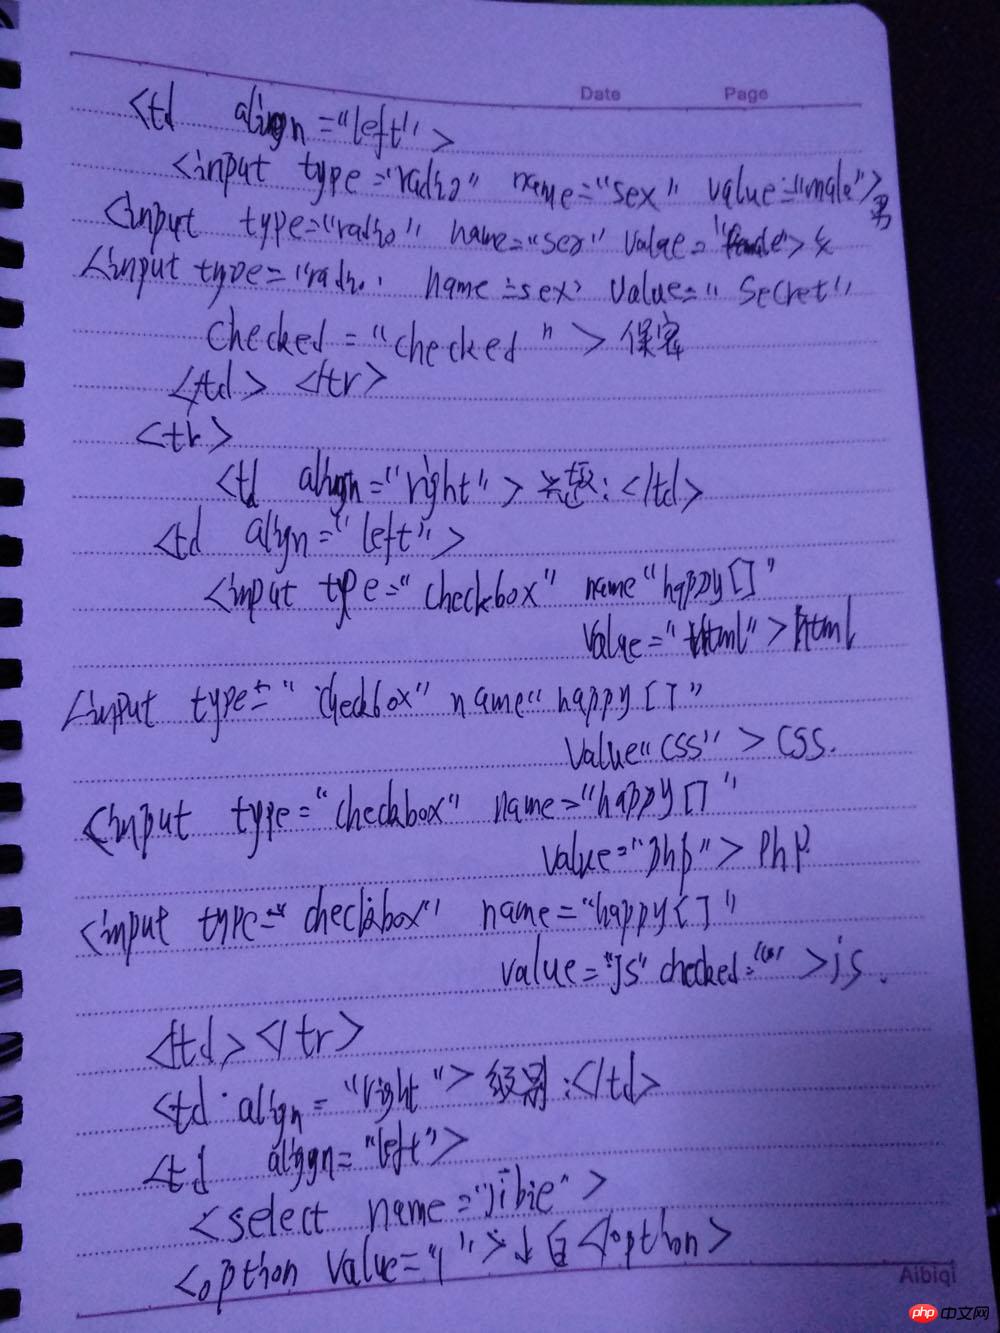 Date Page
<td align="left">
<input type="radio" name="sex" value="male">男
<input type="radio" name="sex" value="female">女
<input type="radio" name=sex' value="secret"
checked="checked">保密
</td></tr>
<tr>
<td align="right">兴趣:</td>
<td align="left">
<input type="checkbox" name"happy[]"
value="Html">Html
<input type="checkbox" name"happy[]"
value"CSS">CSS.
<input type="checkbox" name="happy[]"
value="php">PhP
<input type="checkbox" name="happy[]"
value="JS" checked="">js.
</td></tr>
<td align="right">级别:</td>
<td align="left">
<select name="jibie">
<option value="1">小白<option>
Aibiqi
php 中文网